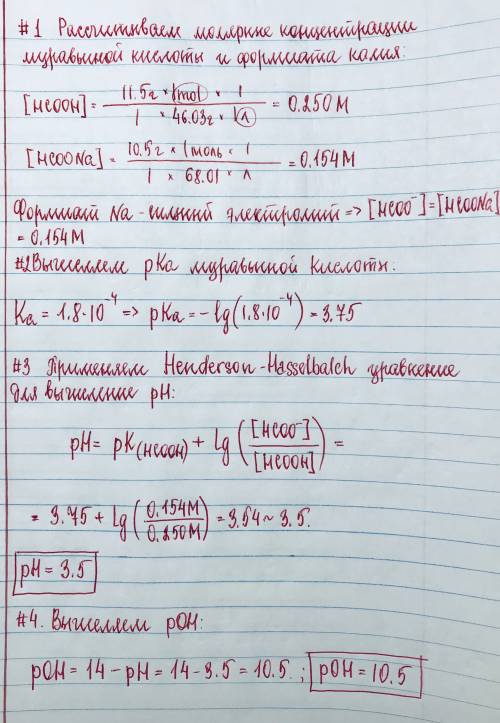 #1 Рассчитываем молярные концентрации
муравьиной кислоты и формиата калия:
[HCOOH] = (11.5г × 1mol × 1) / (1 × 46.03г × 1л) = 0.250 M
[HCOONa] = (10.5г × 1моль × 1) / (1 × 68.01 × л) = 0.154 M
Формиат Na - сильный электролит => [HCOO⁻] = [HCOONa]
= 0.154 M
#2 Вычисляем pKa муравьиной кислоты:
Ka = 1.8·10⁻⁴ => pKa = -lg(1.8·10⁻⁴) = 3.75
#3 Применяем Henderson-Hasselbalch уравнение
для вычисление pH:
pH = pK(HCOOH) + lg([HCOO⁻] / [HCOOH]) =
= 3.75 + lg(0.154M / 0.250M) = 3.54 ~ 3.5.
pH = 3.5
#4. Вычисляем pOH:
pOH = 14 - pH = 14 - 3.5 = 10.5. ; pOH = 10.5